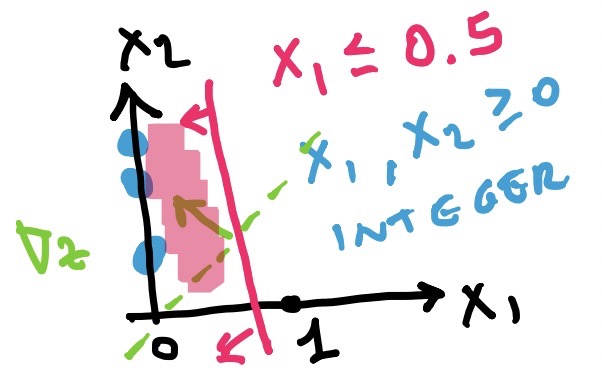 x2
x1 ≤ 0.5
x1, x2 ≥ 0
INTEGER
∇z
x1
0
1